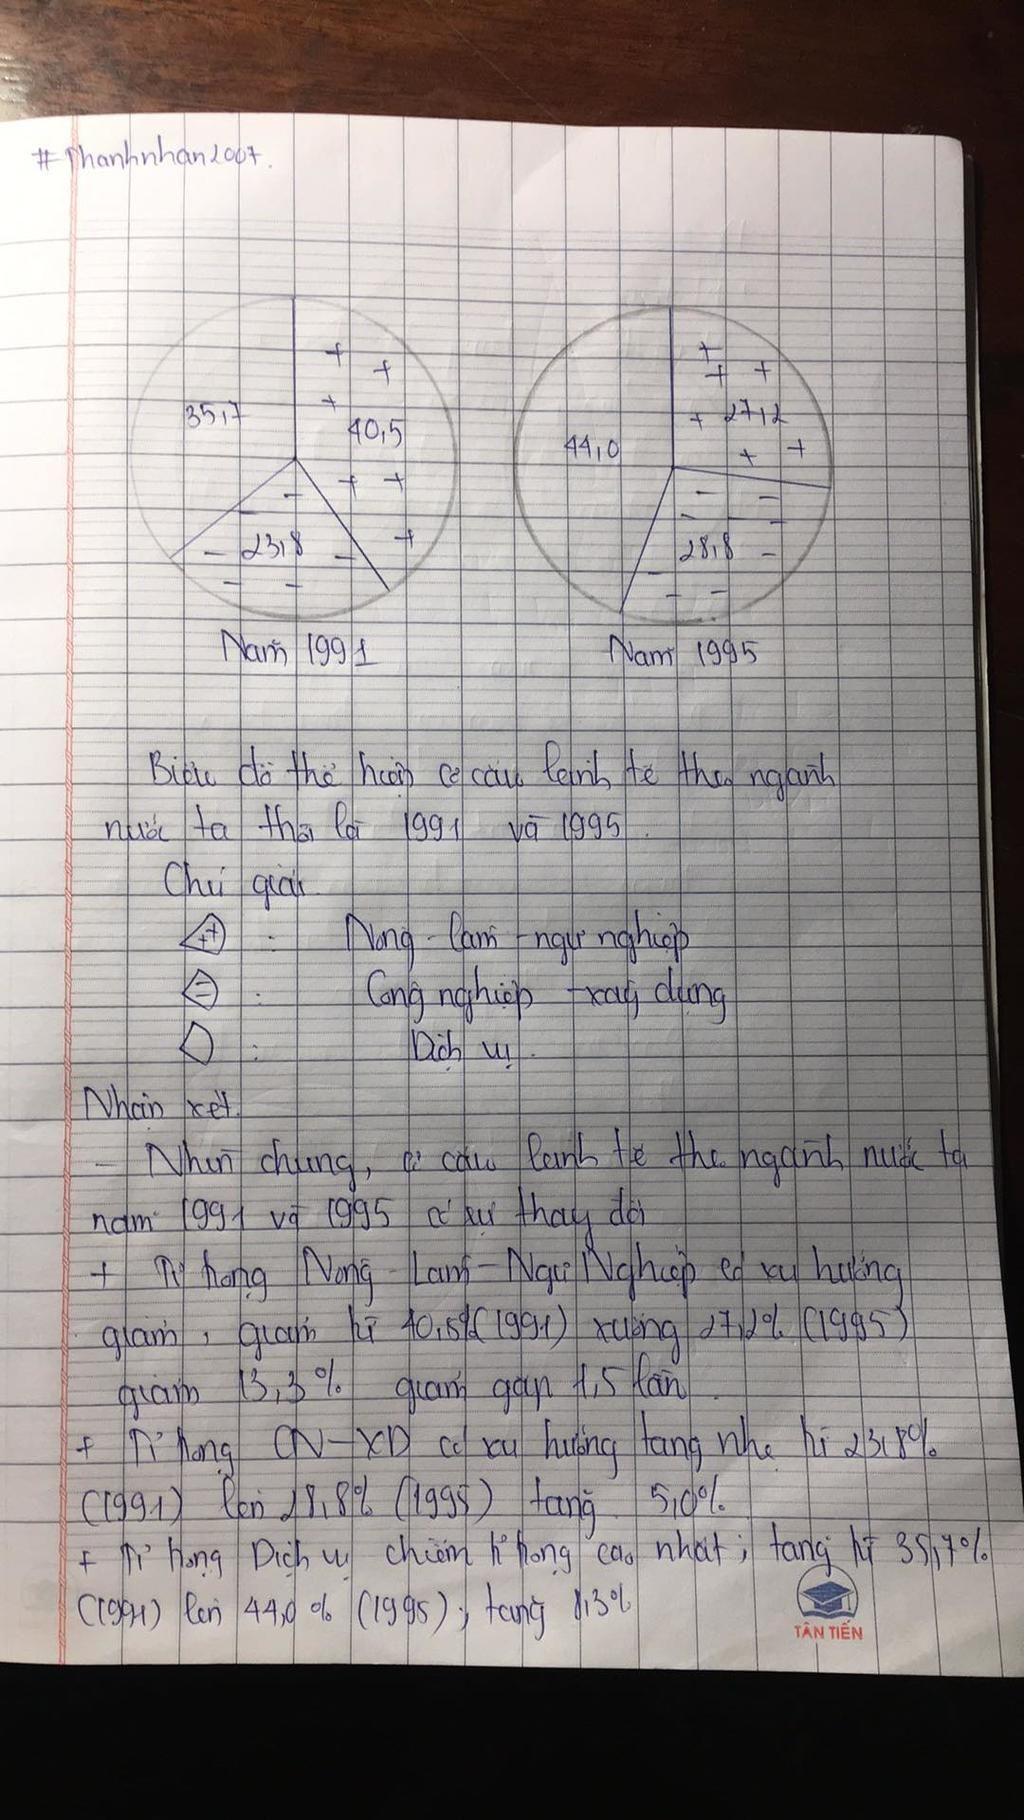 #Thanhnhan2007.
35,7
40,5
23,8
44,0
27,2
28,8
Năm 1991
Năm 1995
Biểu đồ thể hiện cơ cấu kinh tế theo ngành
nước ta thời kì 1991 và 1995.
Chú giải
: Nông - lâm - ngư nghiệp
: Công nghiệp - xây dựng
: Dịch vụ.
Nhận xét.
- Nhìn chung, cơ cấu kinh tế theo ngành nước ta
năm 1991 và 1995 có sự thay đổi
+ Tỉ trọng Nông - Lâm - Ngư Nghiệp có xu hướng
giảm, giảm từ 40,5% (1991) xuống 27,2% (1995)
giảm 13,3% giảm gấp 1,5 lần.
+ Tỉ trọng CN - XD có xu hướng tăng nhẹ từ 23,8%
(1991) lên 28,8% (1995) tăng 5,0%.
+ Tỉ trọng Dịch vụ chiếm tỉ trọng cao nhất; tăng từ 35,7%
(1991) lên 44,0% (1995); tăng 8,3%
TÂN TIẾN